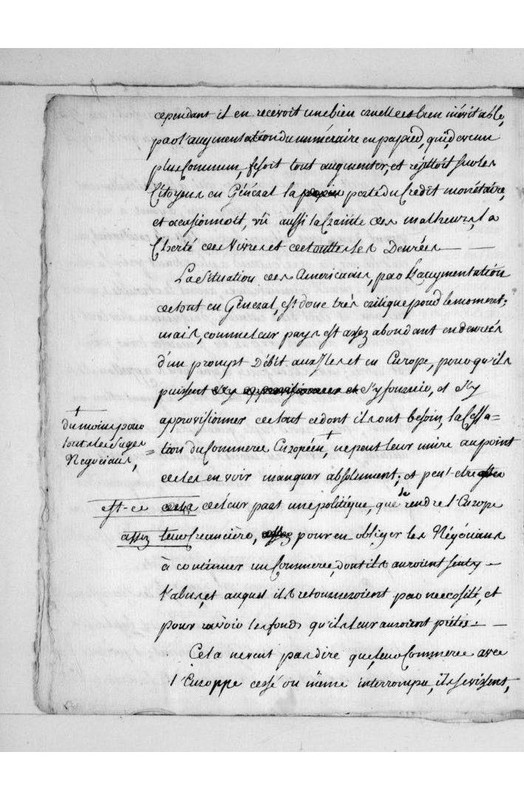 cependant il en recevoit une bien cruelle et bien inévitable,
par l'augmentation du numéraire en papier, qui, devenu
plus commun, fesoit tout augmenter, et rejettoit sur les
Citoyens en Général la perte du Crédit monétaire,
et occasionnoit, vû aussi la crainte des malheurs, la
Cherté des Vivres et de toutes les Denrées
La Situation des Americains, par l'augmentation
de tout en Général, est donc très critique pour le moment;
mais, comme leur pays est assez abondant en denrées
d'un prompt Débit aux Isles et en Europe, pour qu'ils
puissent s'y fournir, et s'y
approvisionner de tout ce dont ils ont besoin, la Cessa=
du moins pour
tous les Sages
Négociants,
tion du Commerce Européen, ne peut leur nuire au point
de les en voir manquer absolument; et peut-être
est-ce de leur part une politique, que de rendre l'Europe
assez leur créancière, pour en obliger les Négociants
à continuer un Commerce, dont ils auroient senty
l'abus, et auquel ils retourneroient par nécessité, et
pour ravoir les fonds qu'ils leur auroient prêtés.
Cela ne veut pas dire que, leur Commerce avec
l'Europpe cessé ou même interrompu, ils se vissent,